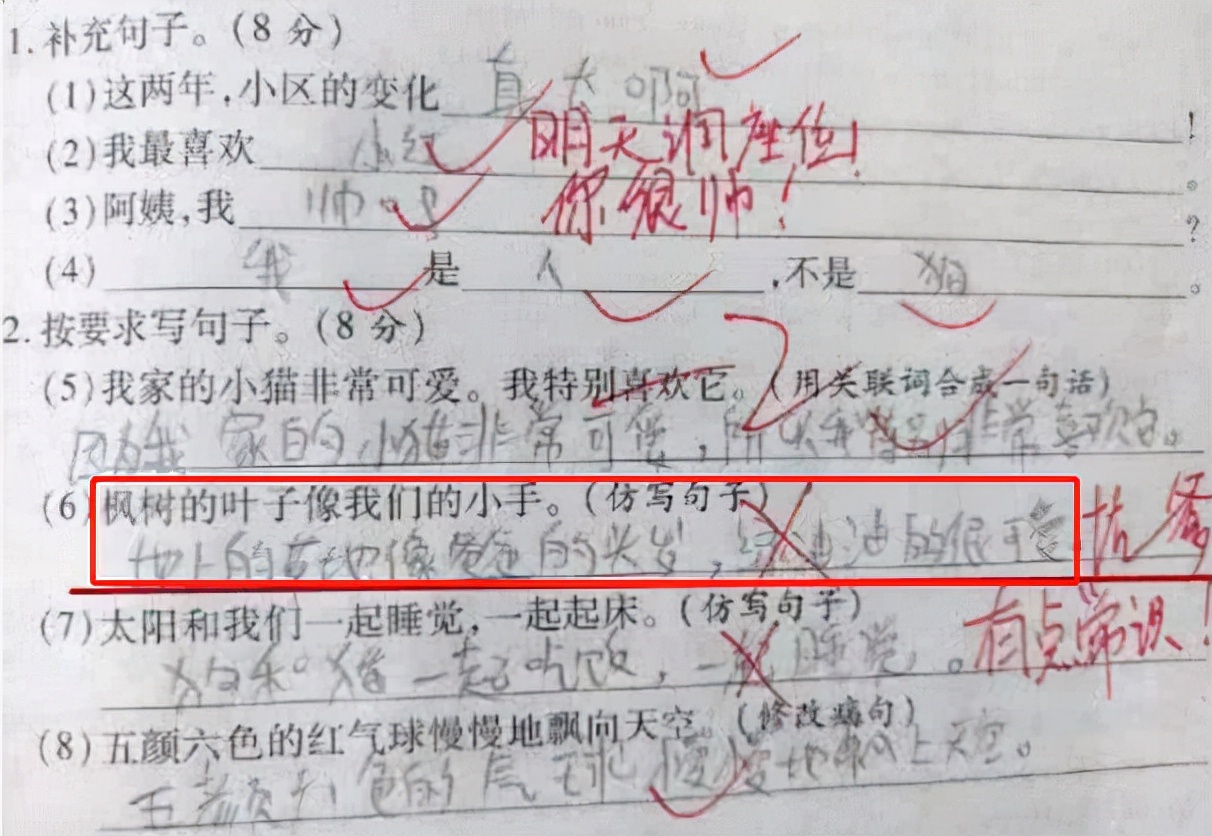 1.补充句子。(8分)
(1)这两年,小区的变化真大啊!
(2)我最喜欢小红。
明天调座位!
(3)阿姨,我帅吗?
你很帅!
(4)我是人,不是猫。
2.按要求写句子。(8分)
(5)我家的小猫非常可爱。我特别喜欢它。(用关联词合成一句话)
因为我家的小猫非常可爱,所以我特别非常喜欢它。
(6)枫树的叶子像我们的小手。(仿写句子)
地上的草地像爸爸的头发,绿油油的很可爱
(7)太阳和我们一起睡觉,一起起床。(仿写句子)
有点常识!
狗和猫一起吃饭,一起睡觉。
(8)五颜六色的红气球慢慢地飘向天空。(修改病句)
五颜六色的气球慢慢地飘上天空。